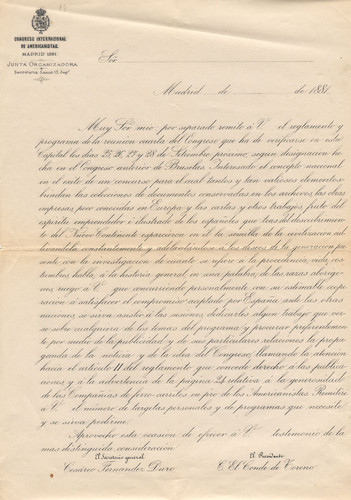 CONGRESO INTERNACIONAL
DE AMERICANISTAS.
MADRID 1881.
JUNTA ORGANIZADORA
Sor
Madrid de de 1881.
Muy Sor mio: por separado remito á V. el reglamento y
programa de la reunion cuarta del Congreso que ha de verificarse en esta
Capital los dias 25, 26, 27 y 28 de Setiembre proximo, segun designacion he-
cha en el Congreso anterior de Bruselas. Interesado el concepto nacional
en el exito de un concurso para el cual tantos y tan valiosos elementos
brindan las colecciones de documentos conservadas en los archivos, las obras
impresas poco conocidas en Europa y las cartas y otros trabajos, fruto del
espiritu emprendedor é ilustrado de los españoles que tras del descubrimien-
to del Nuevo Continente esparcieron en él la semilla de la civilizacion cul-
tivandola constantemente, y adelantandose á los deseos de la generacion pre-
sente con la investigacion de cuanto se refiere á la procedencia, vida, cos-
tumbres, habla, á la historia general, en una palabra, de las razas aborige-
nes, ruego á V. que concurriendo personalmente con su estimable coope-
racion á satisfacer el compromiso aceptado por España ante las otras
naciones, se sirva asistir á las sesiones, dedicarles algun trabajo que ver-
se sobre cualquiera de los temas del programa y procurar preferentemen-
te por medio de la publicidad y de sus particulares relaciones la propa-
ganda de la noticia y de la idea del Congreso, llamando la atencion
hacia el articulo 11 del reglamento que concede derecho á las publica-
ciones y á la advertencia de la página 21 relativa á la generosidad
de las Compañias de ferro-carriles en pro de los Americanistas. Remitiré
á V. el número de targetas personales y de programas que necesite
y se sirva pedirme.
Aprovecho esta ocasion de ofrecer á V. testimonio de la
mas distinguida consideracion
El Secretario general El Presidente
Cesáreo Fernandez Duro El Conde de Toreno